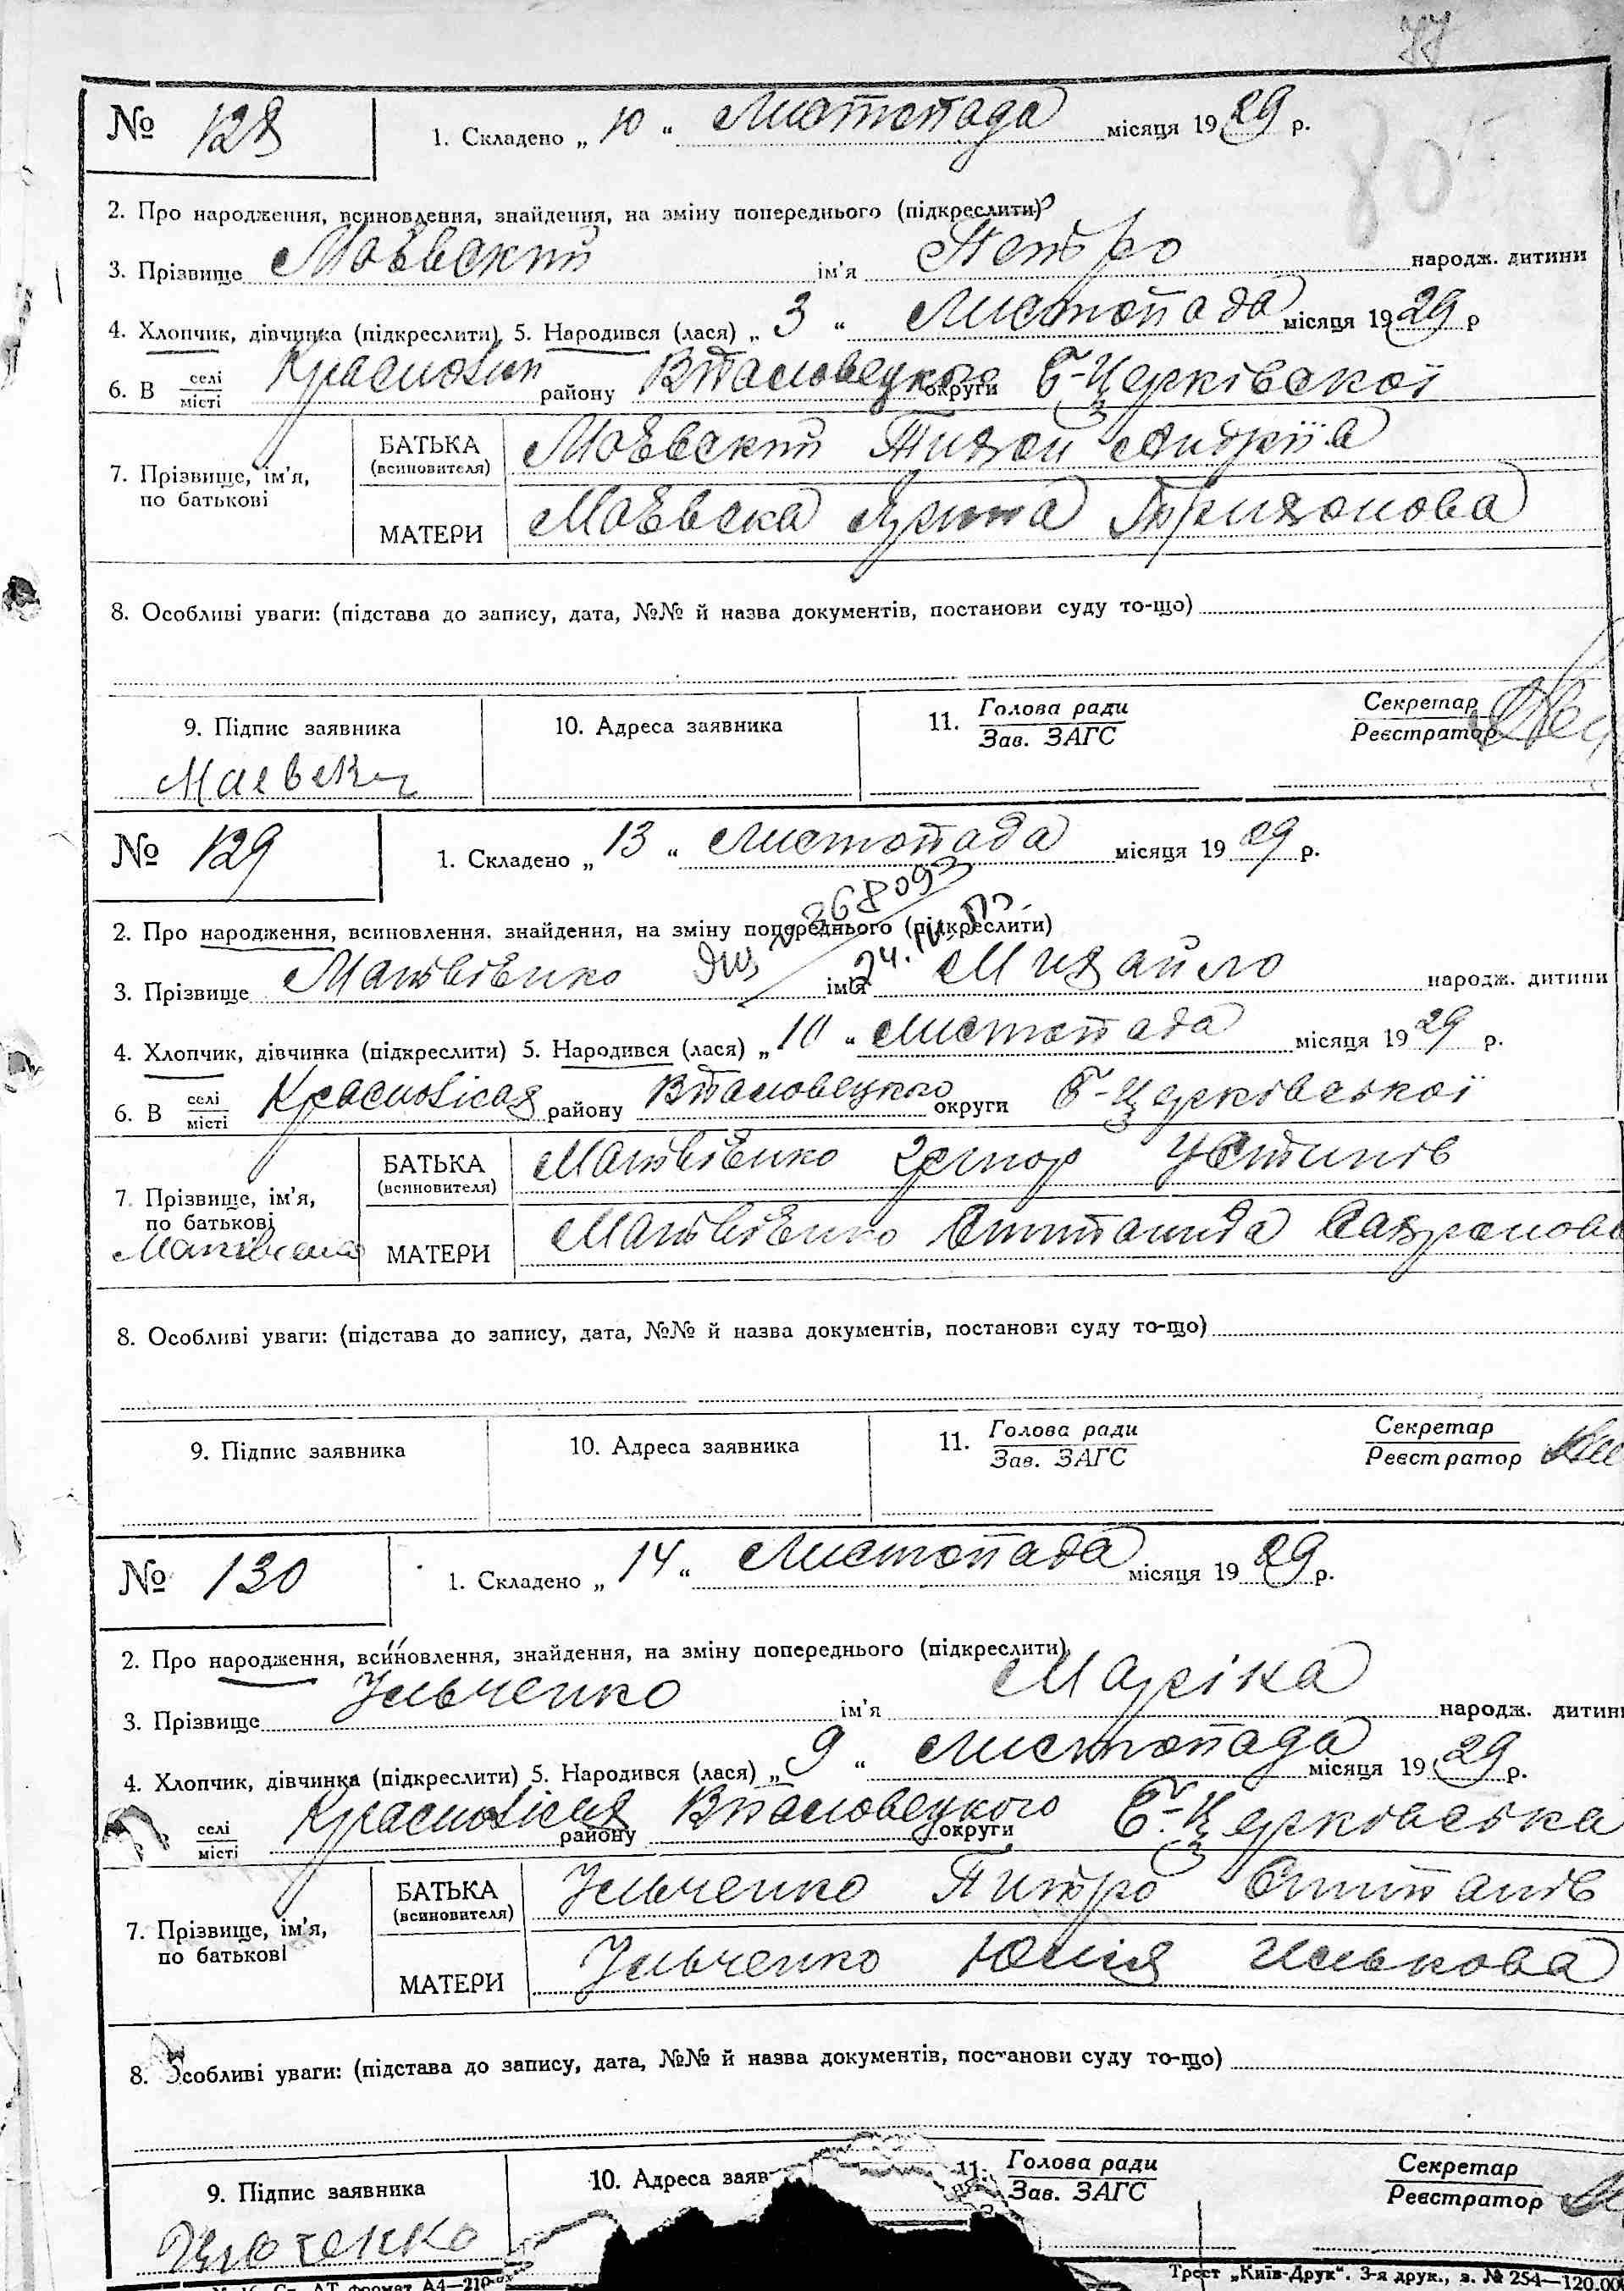 77
80
№ 128
1. Складено „ 10 “ Листопада місяця 1929 р.
2. Про народження, всиновлення, знайдення, на зміну попереднього (підкреслити)
3. Прізвище Маєвский ім'я Петро народж. дитини
4. Хлопчик, дівчинка (підкреслити) 5. Народився (лася) „ 3 “ Листопада місяця 1929 р
6. В селі місті району Ставовецкого округи Б-Церківскої
7. Прізвище, ім'я, по батькові
БАТЬКА (всиновителя) Маєвский Тихон Андріїв
МАТЕРИ Маєвска Ярина Трихонова
8. Особливі уваги: (підстава до запису, дата, №№ й назва документів, постанови суду то-що)
9. Підпис заявника 10. Адреса заявника 11. Голова ради Зав. ЗАГС Секретар Реєстратор
Маевски
№ 129
1. Складено „ 13 “ Листопада місяця 1929 р.
268093
2. Про народження, всиновлення. знайдення, на зміну попереднього (підкреслити)
3. Прізвище Матвієнко ім'я Михайло народж. дитини
4. Хлопчик, дівчинка (підкреслити) 5. Народився (лася) „ 10 “ Листопада місяця 1929 р.
6. В селі місті Красносілця району Ставовецкого округи Б-Церківської
7. Прізвище, ім'я, по батькові
БАТЬКА (всиновителя) Матвієнко Устинів
МАТЕРИ Матвієнко
8. Особливі уваги: (підстава до запису, дата, №№ й назва документів, постанови суду то-що)
9. Підпис заявника 10. Адреса заявника 11. Голова ради Зав. ЗАГС Секретар Реєстратор
№ 130
1. Складено „ 14 “ Листопада місяця 1929 р.
2. Про народження, всиновлення, знайдення, на зміну попереднього (підкреслити)
3. Прізвище Ильченко ім'я Маріка народж. дитини
4. Хлопчик, дівчинка (підкреслити) 5. Народився (лася) „ 9 “ Листопада місяця 1929 р.
селі місті Красносілця району Ставовецкого округи Б-Церківська
7. Прізвище, ім'я, по батькові
БАТЬКА (всиновителя) Ильченко Питро
МАТЕРИ Ильченко Юлия Иськова
8. Особливі уваги: (підстава до запису, дата, №№ й назва документів, постанови суду то-що)
9. Підпис заявника 10. Адреса заяв 11. Голова ради Зав. ЗАГС Секретар Реєстратор
Ильченко
формат А4—210 Трест „Київ-Друк“. 3-я друк., з. № 254—120.00